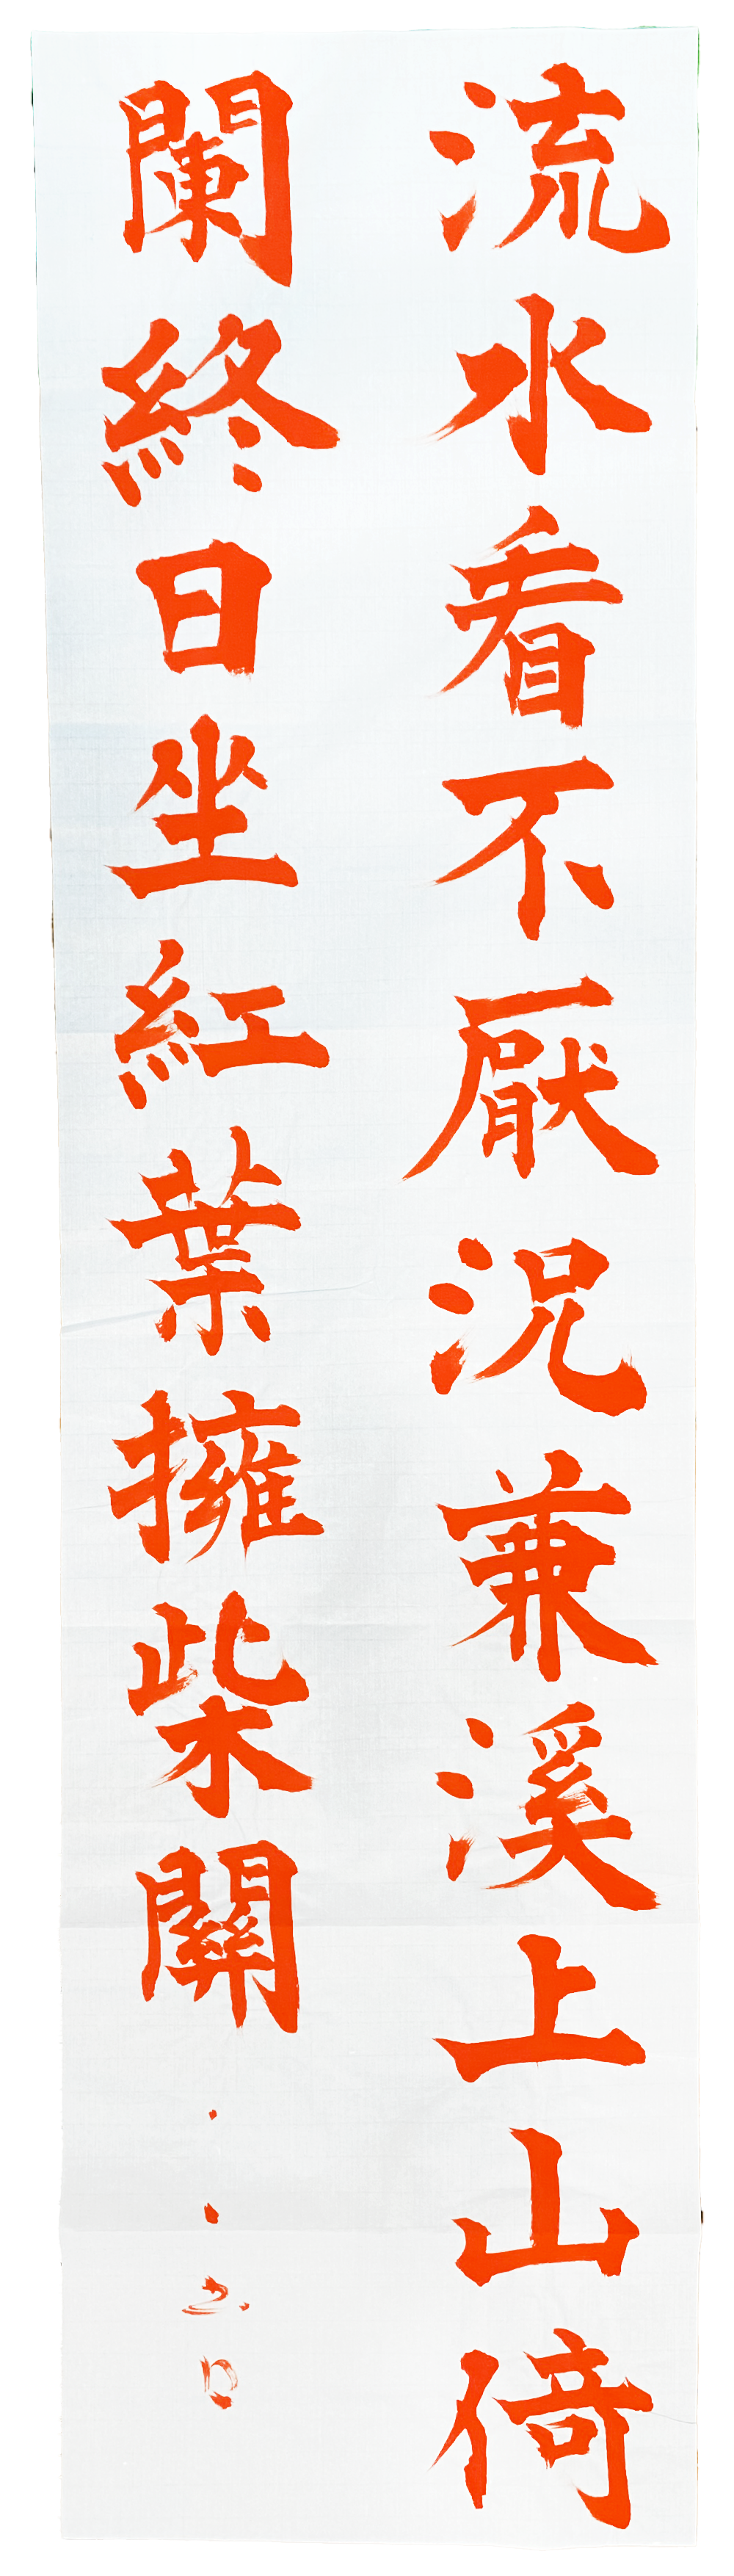 流水看不厭況兼溪上山倚
闌終日坐紅葉擁柴關